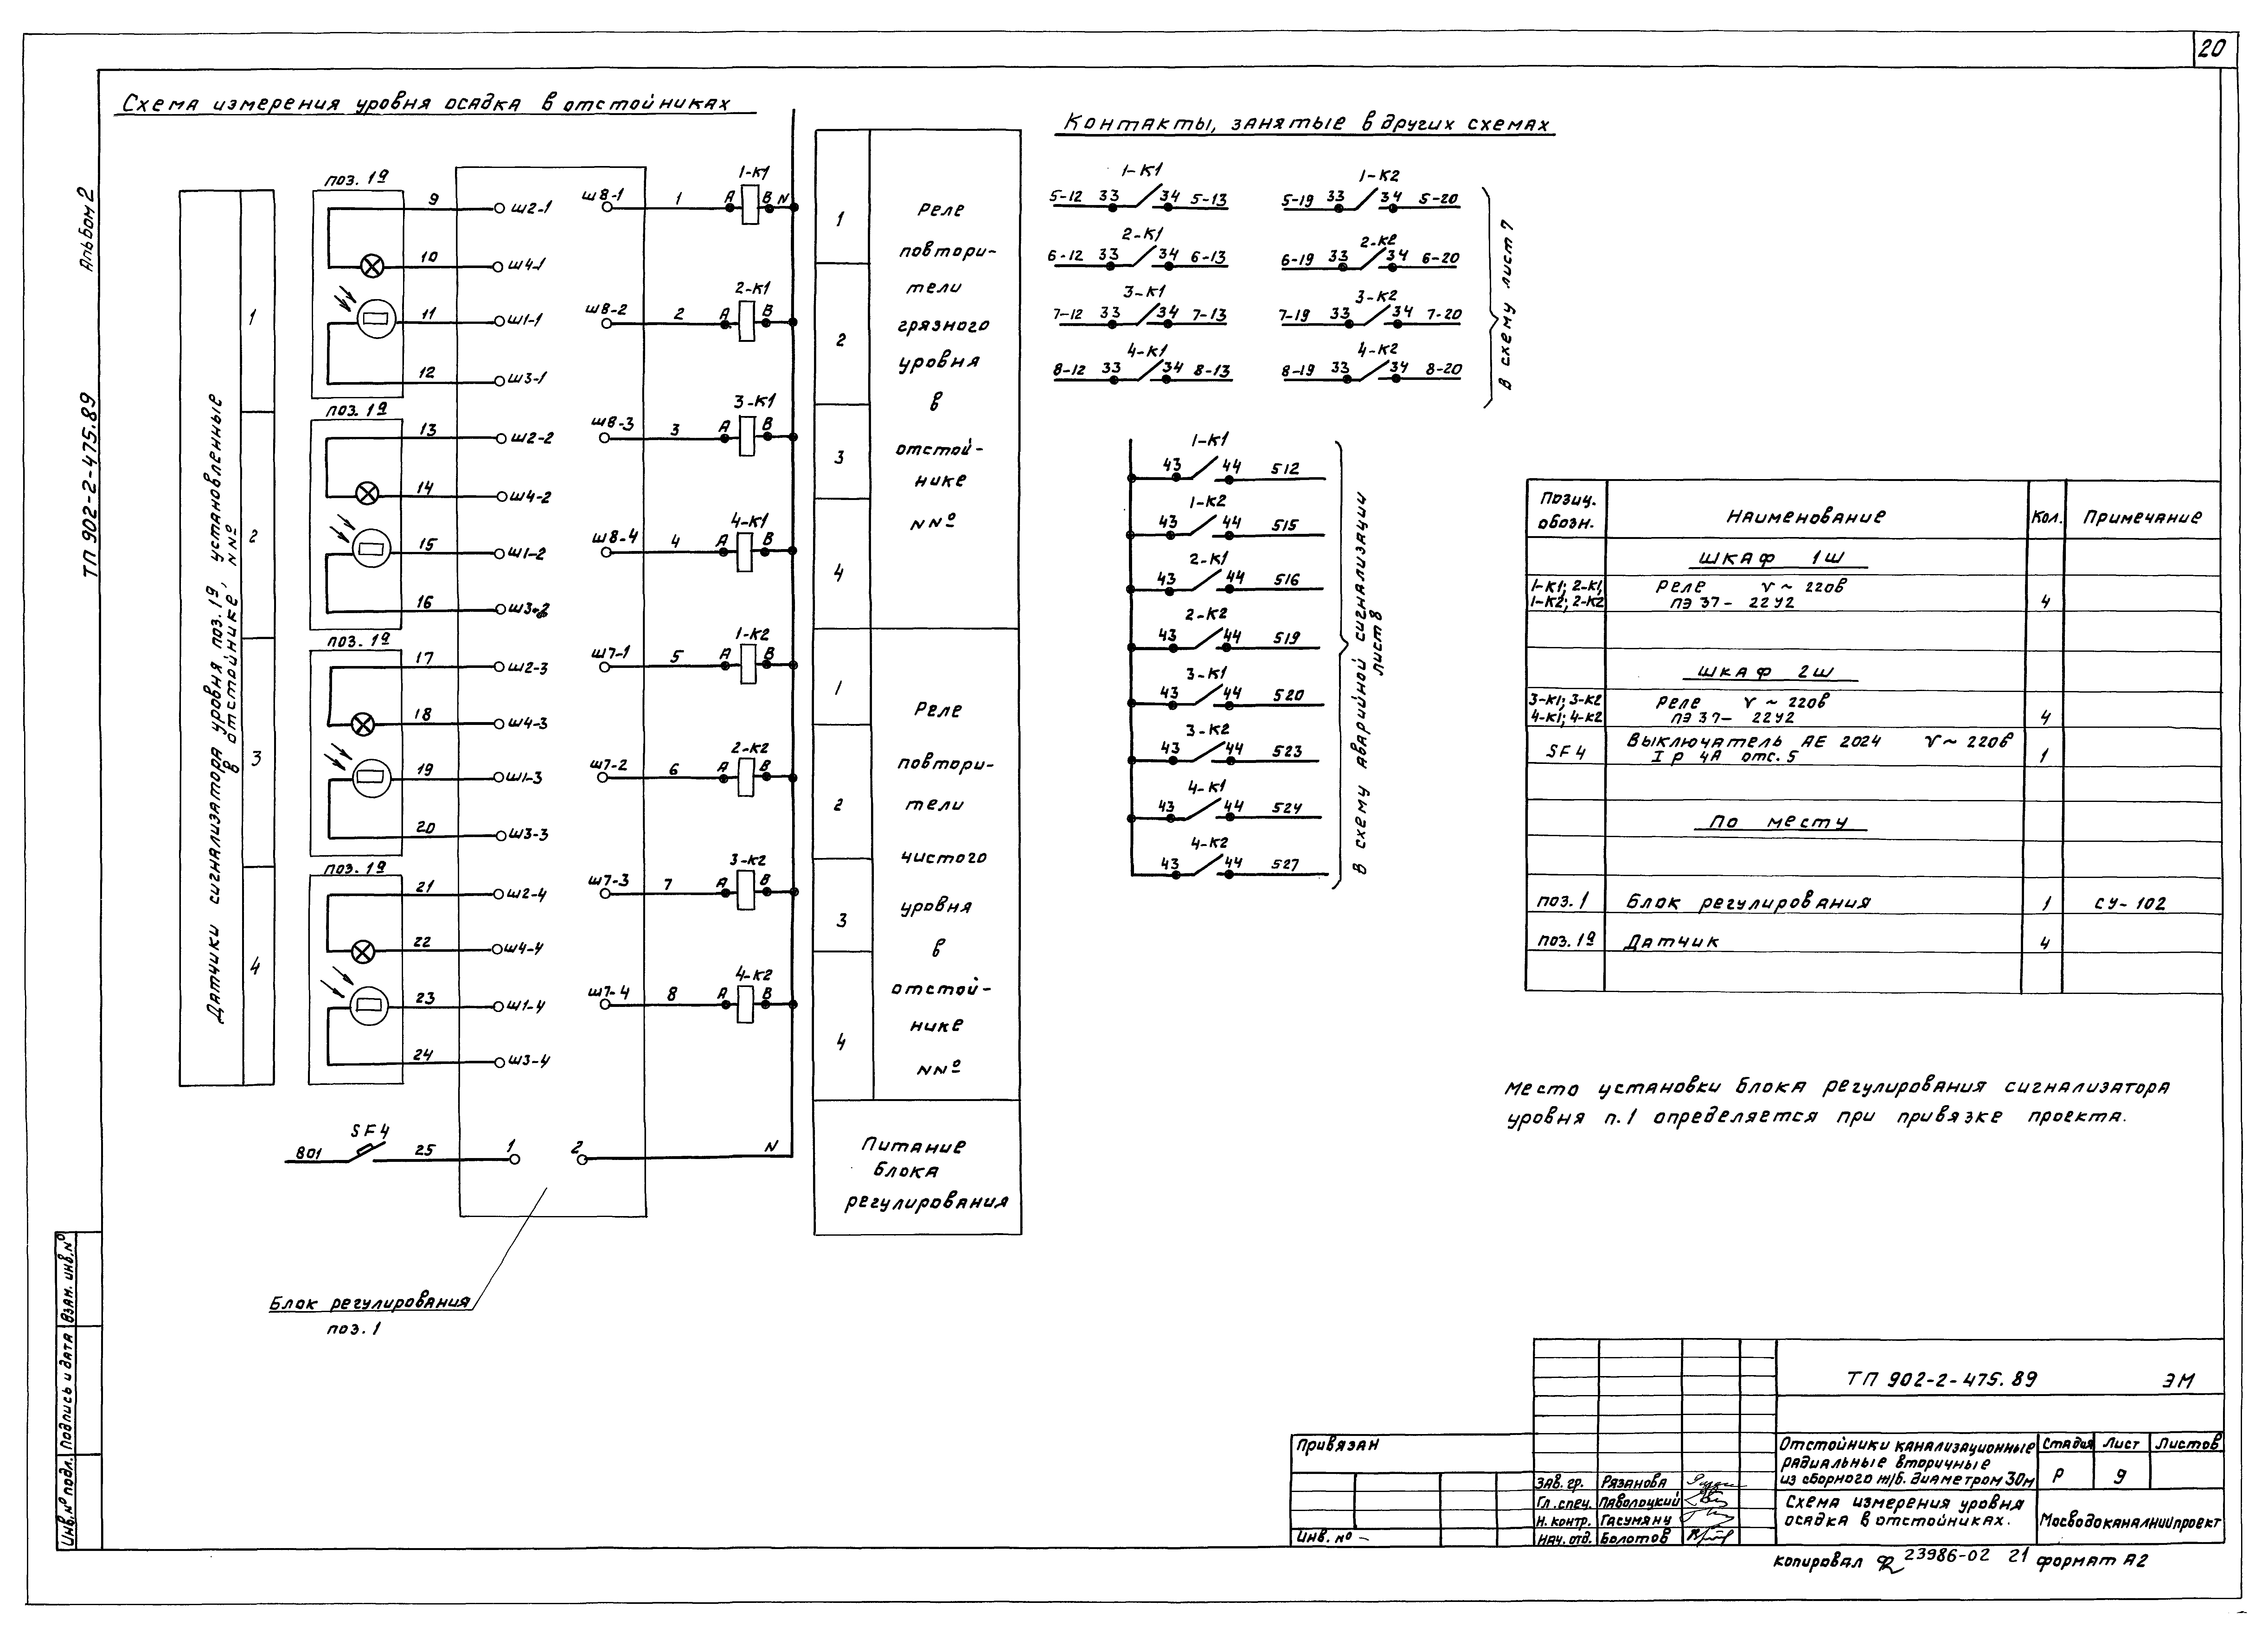 20
Схема измерения уровня осадка в отстойниках
Альбом 2
ТП 902-2-475.89
Датчики сигнализатора уровня поз. 1а, установленные
в отстойнике, NNº
1
2
3
4
поз. 1а
9 Ш2-1
10 Ш4-1
11 Ш1-1
12 Ш3-1
поз. 1а
13 Ш2-2
14 Ш4-2
15 Ш1-2
16 Ш3-2
поз. 1а
17 Ш2-3
18 Ш4-3
19 Ш1-3
20 Ш3-3
поз. 1а
21 Ш2-4
22 Ш4-4
23 Ш1-4
24 Ш3-4
801 SF4 25 1 2 N
Ш8-1 1 А 1-К1 В N
Ш8-2 2 А 2-К1 В
Ш8-3 3 А 3-К1 В
Ш8-4 4 А 4-К1 В
Ш7-1 5 А 1-К2 В
Ш7-2 6 А 2-К2 В
Ш7-3 7 А 3-К2 В
Ш7-4 8 А 4-К2 В
Блок регулирования
поз. 1
1
2
3
4
Реле
повтори-
тели
грязного
уровня
в
отстой-
нике
NNº
1
2
3
4
Реле
повтори-
тели
чистого
уровня
в
отстой-
нике
NNº
Питание
блока
регулирования
Контакты, занятые в других схемах
1-К1
5-12 33 34 5-13
2-К1
6-12 33 34 6-13
3-К1
7-12 33 34 7-13
4-К1
8-12 33 34 8-13
1-К2
5-19 33 34 5-20
2-К2
6-19 33 34 6-20
3-К2
7-19 33 34 7-20
4-К2
8-19 33 34 8-20
В схему лист 7
1-К1
43 44 512
1-К2
43 44 515
2-К1
43 44 516
2-К2
43 44 519
3-К1
43 44 520
3-К2
43 44 523
4-К1
43 44 524
4-К2
43 44 527
В схему аварийной сигнализации
лист 8
Позиц. обозн. Наименование Кол. Примечание
Шкаф 1Ш
1-К1; 2-К1; Реле V ~ 220в
1-К2; 2-К2 ПЭ 37- 22У2 4
Шкаф 2Ш
3-К1; 3-К2 Реле V ~ 220в
4-К1; 4-К2 ПЭ 37- 22У2 4
SF4 Выключатель АЕ 2024 V ~ 220в
Iр 4А отс. 5 1
По месту
поз. 1 Блок регулирования 1 СУ-102
поз. 1а Датчик 4
Место установки блока регулирования сигнализатора
уровня п.1 определяется при привязке проекта.
Инв. № подл. Подпись и дата Взам. инв. №
Привязан
Инв. № -
Зав. гр. Рязанова
Гл. спец. Паволоцкий
Н. контр. Гасумяну
Нач. отд. Болотов
ТП 902-2-475.89 ЭМ
Отстойники канализационные
радиальные вторичные
из сборного ж/б. диаметром 30м
Стадия Лист Листов
Р 9
Схема измерения уровня
осадка в отстойниках.
Мосводоканалниипроект
Копировал 23986-02 21 формат А2